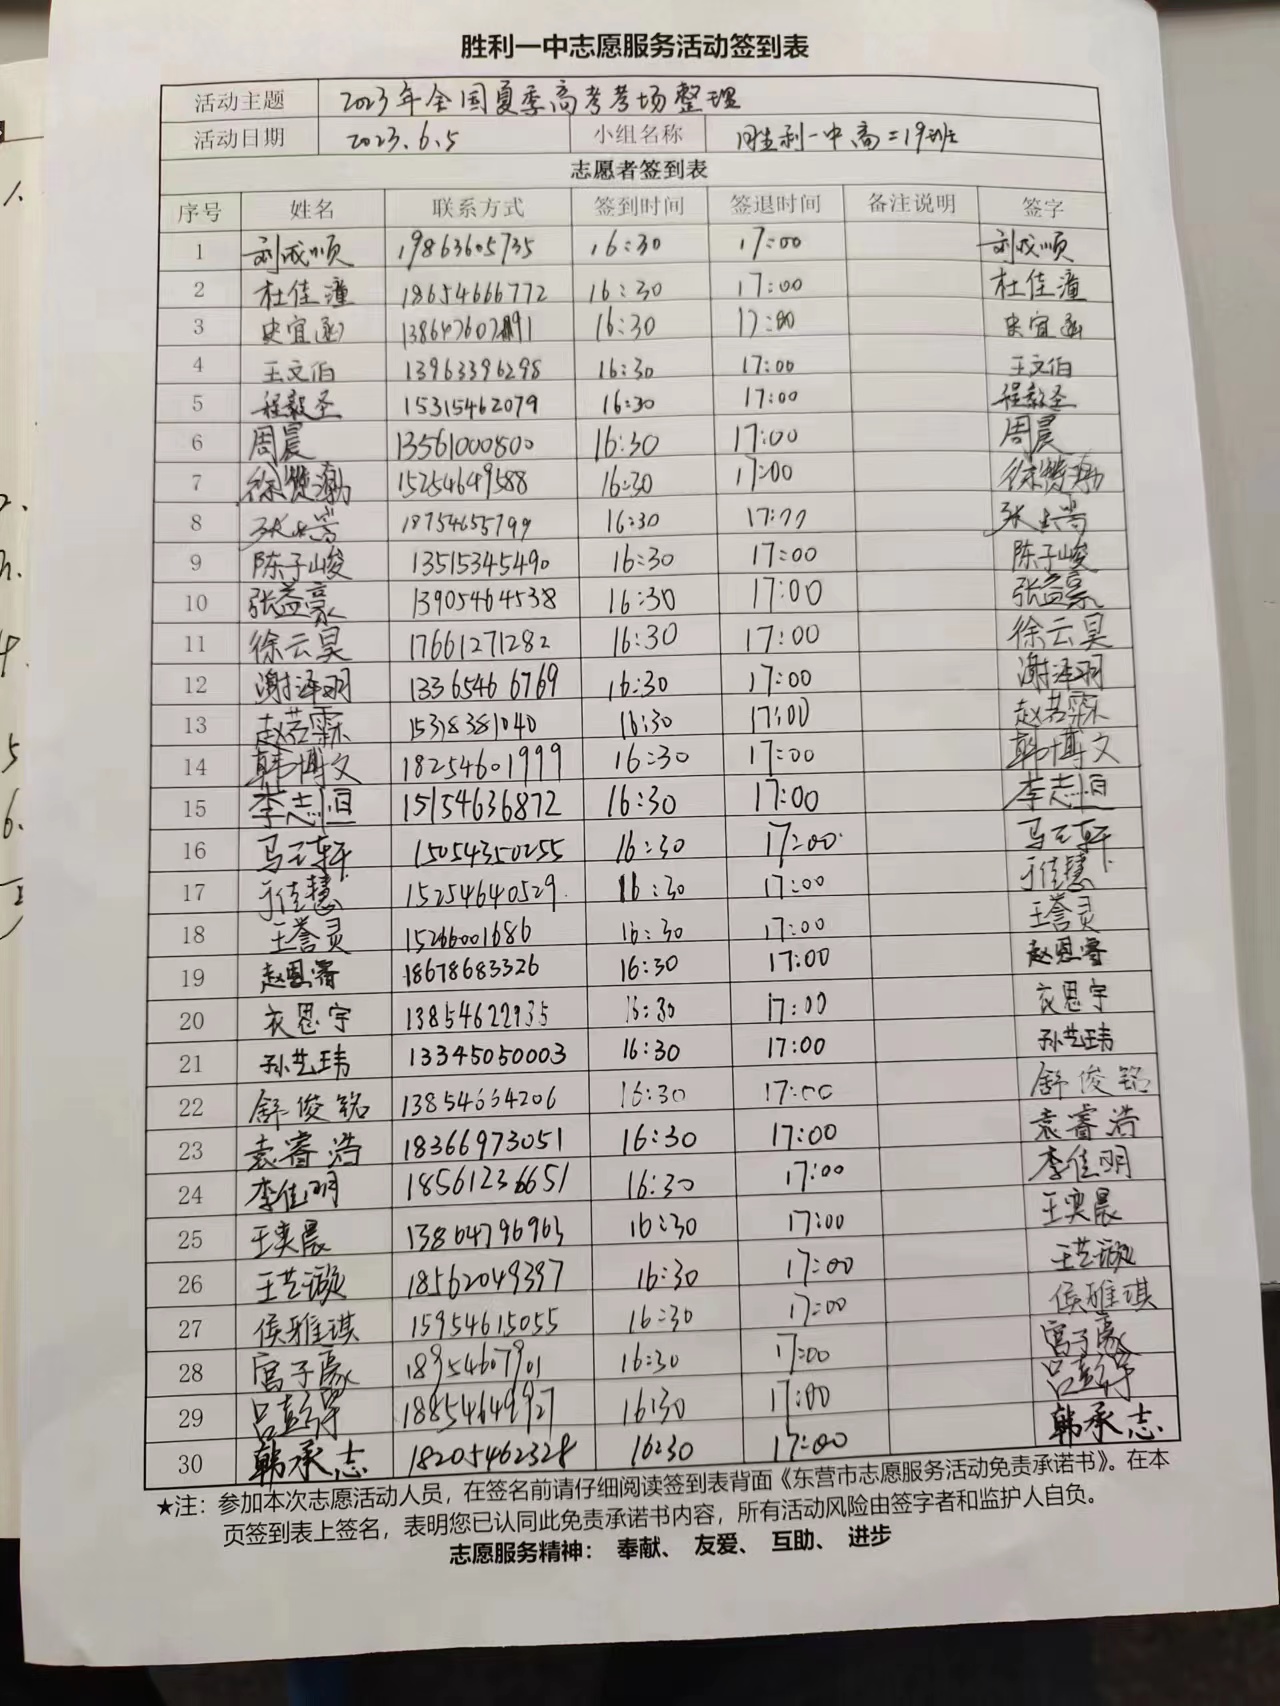 胜利一中志愿服务活动签到表
活动主题 2023年全国夏季高考考场整理
活动日期 2023.6.5 小组名称 胜利一中高二19班
志愿者签到表
序号 姓名 联系方式 签到时间 签退时间 备注说明 签字
1 刘成顺 19863605735 16:30 17:00 刘成顺
2 杜佳潼 18654666772 16:30 17:00 杜佳潼
3 史宜函 16:30 17:00 史宜函
4 王文伯 13963396298 16:30 17:00 王文伯
5 程毅圣 15315462079 16:30 17:00 程毅圣
6 周晨 13561000800 16:30 17:00 周晨
7 徐赞瀚 15254649588 16:30 17:00 徐赞瀚
8 18754655799 16:30 17:00
9 陈子峻 13515345490 16:30 17:00 陈子峻
10 张益豪 13905464538 16:30 17:00 张益豪
11 徐云昊 17661271282 16:30 17:00 徐云昊
12 谢泽羽 13365466769 16:30 17:00 谢泽羽
13 赵若霖 15318381040 16:30 17:00 赵若霖
14 韩博文 18254601999 16:30 17:00 韩博文
15 李志恒 15154636872 16:30 17:00 李志恒
16 马玉轩 15054350255 16:30 17:00 马玉轩
17 于佳慧 15254640529 16:30 17:00 于佳慧
18 王誉灵 15266001686 16:30 17:00 王誉灵
19 赵恩睿 18678683326 16:30 17:00 赵恩睿
20 衣恩宇 13854622935 16:30 17:00 衣恩宇
21 孙艺玮 13345050003 16:30 17:00 孙艺玮
22 舒俊铭 13854664206 16:30 17:00 舒俊铭
23 袁睿浩 18366973051 16:30 17:00 袁睿浩
24 李佳明 18561236651 16:30 17:00 李佳明
25 王奕晨 13864796963 16:30 17:00 王奕晨
26 王艺璇 18562049397 16:30 17:00 王艺璇
27 侯雅琪 15954615055 16:30 17:00 侯雅琪
28 宫子豪 18954607901 16:30 17:00 宫子豪
29 吕彭宇 18854649927 16:30 17:00 吕彭宇
30 韩承志 18205462328 16:30 17:00 韩承志
★注：参加本次志愿活动人员，在签名前请仔细阅读签到表背面《东营市志愿服务活动免责承诺书》。在本
页签到表上签名，表明您已认同此免责承诺书内容，所有活动风险由签字者和监护人自负。
志愿服务精神： 奉献、 友爱、 互助、 进步